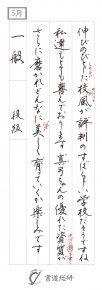 5月
伸びのびした校風が評判のすばらしい学校だそうですね
私達もとても喜んでおります 真弓ちゃんの優れた資質が
さらに磨かれどんなに美しく育っていくか楽しみです
一般 段級
書道総研